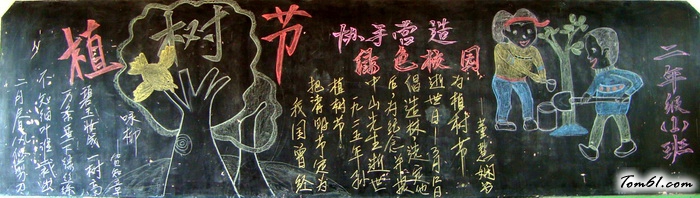 植树节
协手营造
绿色校园
咏柳
——贺知章
碧玉妆成一树高
万条垂下绿丝绦
不知细叶谁裁出
二月春风似剪刀
我国曾经
把清明节定为
植树节
一九二五年孙
中山先生逝世
后为纪念
倡造林选定他
逝世日—3月12日
为植树节
二年级(1)班
Tom61.com